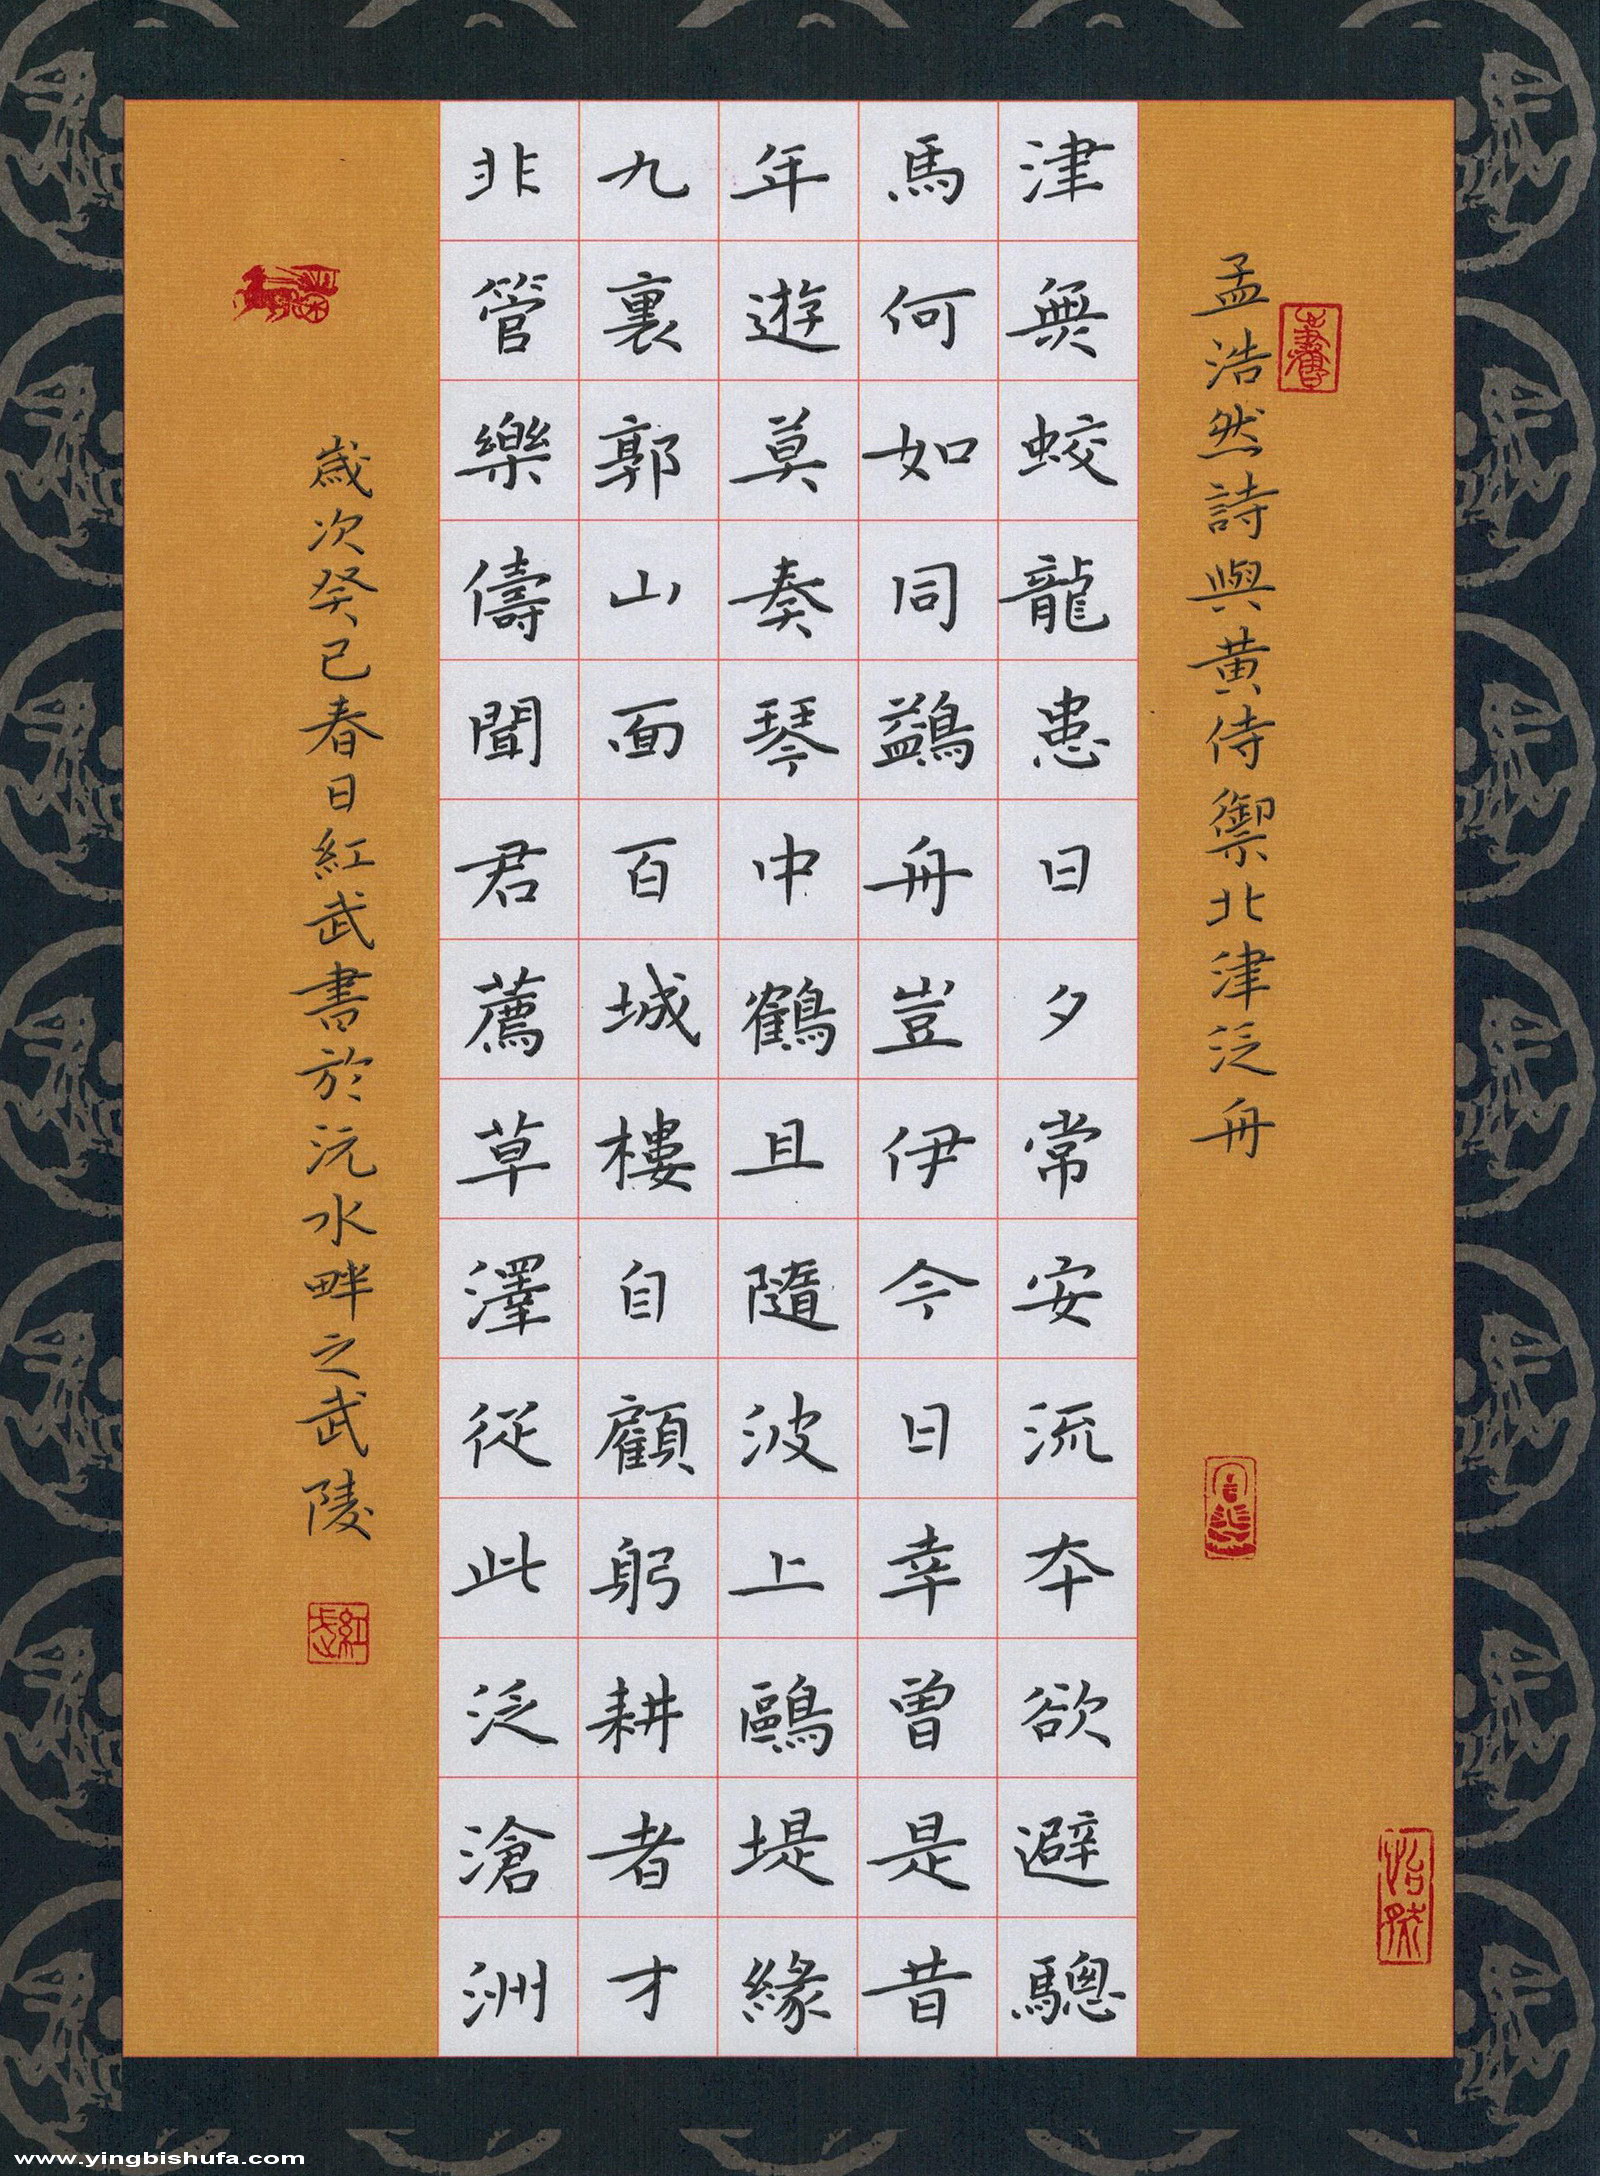 孟浩然詩與黄侍禦北津泛舟
津無蛟龍患日夕常安流夲欲避驄
馬何如同鷁舟豈伊今日幸曾是昔
年遊莫奏琴中鶴且隨波上鷗堤緣
九裏郭山面百城樓自顧躬耕者才
非管樂儔聞君薦草澤從此泛滄洲
歲次癸巳春日紅武書於沅水畔之武陵
紅武
www.yingbishufa.com